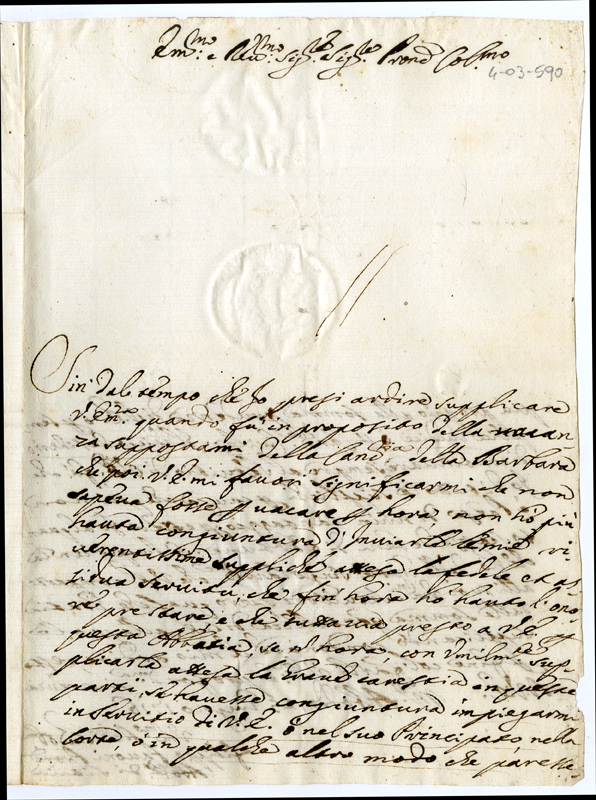 Em.mo e Rev.mo Sig.re Sig.re Pron.e Col.mo
4-03-590
Sin' dal tempo che Io presi ardire supplicare
V. Em.za quando fu in proposito della vacan-
za suppostami della Canc.ria della Barbara
che poi V. E. mi favorì significarmi che non
sapeva fosse p vacare p hora, non hò più
hauta congiuntura d'Inuiarle le mie ri-
uerentissime suppliche attesa la fedele et as-
sidua seruitù, che sin' hora hò hauto l'ono-
re prestare e che tuttauia presto a V. E. p
questa Abbatia, se n' hora, con Vmilm.te sup-
plicarla attesa la grand carestia in queste
parti, se hauesse congiuntura impiegarmi
in seruitio di V. E. ò nel suo Principato nella
Corte, ò in qualche altro modo che paresse